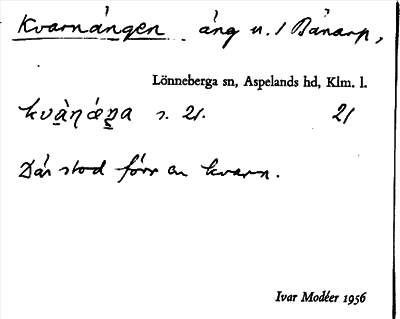 Kvarnängen. äng u. / Bänarp,
Lönneberga sn, Aspelands hd, Klm. l.
kvàɳæŋa s. 21. 21
Där stod förr en kvarn.
Ivar Modéer 1956